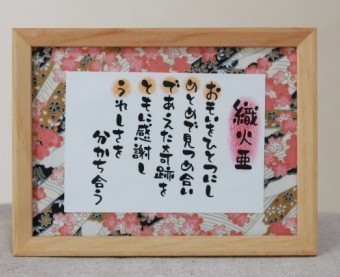 織火亜
おもいをひとつにし
めとめで見つめ合い
であえた奇跡を
ともに感謝し
うれしさを
分かち合う